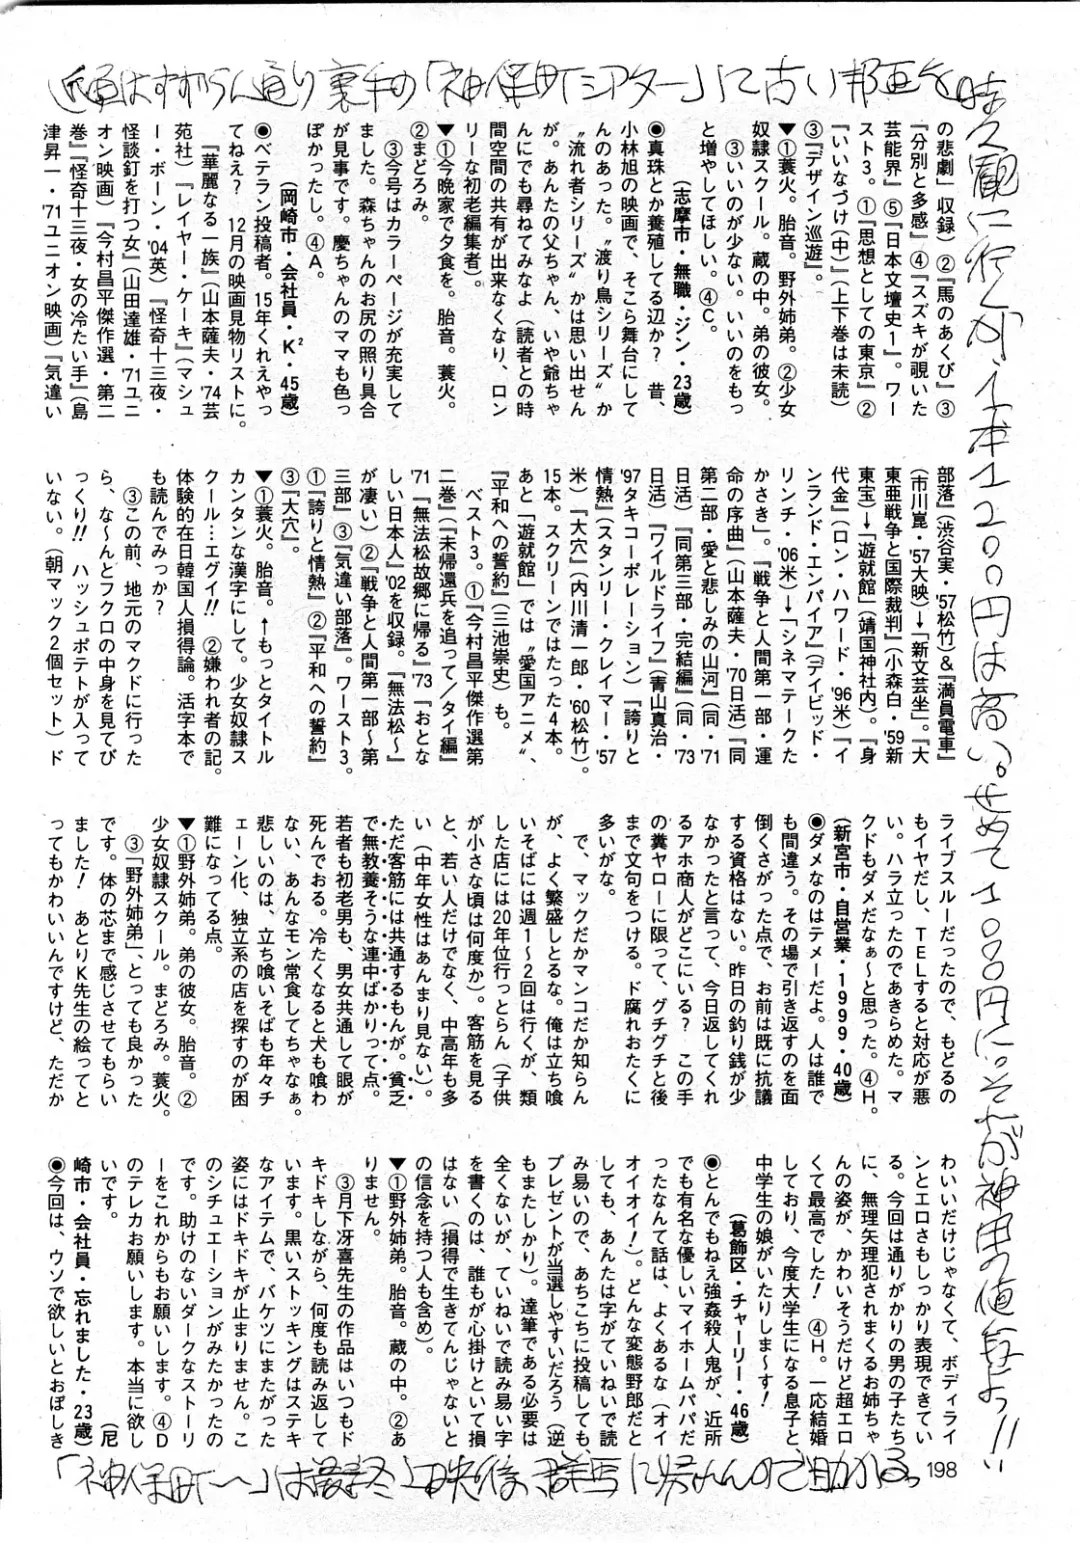 近頃はすずらん通り裏手の「神保町シアター」って古い邦画を
時々観に行くが、1本1200円は高い。せめて1000円に。それが神田の値段よっ!!
の悲劇」収録）②『馬のあくび』③
『分別と多感』④『スズキが覗いた
芸能界』⑤『日本文壇史1』。ワー
スト3。①『思想としての東京』②
『いいなづけ（中）』（上下巻は未読）
③『デザイン巡遊』。
▼①蓑火。胎音。野外姉弟。②少女
奴隷スクール。蔵の中。弟の彼女。
③いいのが少ない。いいのをもっ
と増やしてほしい。④C。
（志摩市・無職・ジン・23歳）
◉真珠とか養殖してる辺か？　昔、
小林旭の映画で、そこら舞台にして
んのあった。〝渡り鳥シリーズ〟か
〝流れ者シリーズ〟かは思い出せん
が。あんたの父ちゃん、いや爺ちゃ
んにでも尋ねてみなよ（読者との時
間空間の共有が出来なくなり、ロン
リーな初老編集者）。
▼①今晩家で夕食を。胎音。蓑火。
②まどろみ。
③今号はカラーページが充実して
ました。森ちゃんのお尻の照り具合
が見事です。慶ちゃんのママも色っ
ぽかったし。④A。
（岡崎市・会社員・K²・45歳）
◉ベテラン投稿者。15年くれえやっ
てねえ？　12月の映画見物リストに。
『華麗なる一族』（山本薩夫・'74芸
苑社）『レイヤー・ケーキ』（マシュ
ー・ボーン・'04英）『怪奇十三夜・
怪談釘を打つ女』（山田達雄・'71ユニ
オン映画）『今村昌平傑作選・第二
巻』『怪奇十三夜・女の冷たい手』（島
津昇一・'71ユニオン映画）『気違い
部落』（渋谷実・'57松竹）＆『満員電車』
（市川崑・'57大映）→「新文芸坐」。『大
東亜戦争と国際裁判』（小森白・'59新
東宝）→「遊就館」（靖国神社内）。『身
代金』（ロン・ハワード・'96米）『イ
ンランド・エンパイア』（デイビッド・
リンチ・'06米）→「シネマテークた
かさき」。『戦争と人間第一部・運
命の序曲』（山本薩夫・'70日活）『同
第二部・愛と悲しみの山河』（同・'71
日活）『同第三部・完結編』（同・'73
日活）『ワイルドライフ』（青山真治・
'97タキコーポレーション）『誇りと
情熱』（スタンリー・クレイマー・'57
米）『大穴』（内川清一郎・'60松竹）。
15本。スクリーンではたった4本。
あと「遊就館」では〝愛国アニメ〟、
『平和への誓約』（三池崇史）も。
ベスト3。①『今村昌平傑作選第
二巻』（『未帰還兵を追って／タイ編』
'71『無法松故郷に帰る』'73『おとな
しい日本人』'02を収録。『無法松〜』
が凄い）②『戦争と人間第一部〜第
三部』③『気違い部落』。ワースト3。
①『誇りと情熱』②『平和への誓約』
③『大穴』。
▼①蓑火。胎音。↑もっとタイトル
カンタンな漢字にして。少女奴隷ス
クール…エグイ!!　②嫌われ者の記。
体験的在日韓国人損得論。活字本で
も読んでみっか？
③この前、地元のマクドに行った
ら、な〜んとフクロの中身を見てび
っくり!!　ハッシュポテトが入って
いない。（朝マック2個セット）ド
ライブスルーだったので、もどるの
もイヤだし、TELすると対応が悪
い。ハラ立ったのであきらめた。マ
クドもダメだなぁ〜と思った。④H。
（新宮市・自営業・1999・40歳）
◉ダメなのはテメーだよ。人は誰で
も間違う。その場で引き返すのを面
倒くさがった点で、お前は既に抗議
する資格はない。昨日の釣り銭が少
なかったと言って、今日返してくれ
るアホ商人がどこにいる？　この手
の糞ヤローに限って、グチグチと後
まで文句をつける。ド腐れおたくに
多いがな。
で、マックだかマンコだか知らん
が、よく繁盛しとるな。俺は立ち喰
いそばには週1〜2回は行くが、類
した店には20年位行っとらん（子供
が小さな頃は何度か）。客筋を見る
と、若い人だけでなく、中高年も多
い（中年女性はあんまり見ない）。
ただ客筋には共通するもんが。貧乏
で無教養そうな連中ばかりって点。
若者も初老男も、男女共通して眼が
死んでおる。冷たくなると犬も喰わ
ない、あんなモン常食してちゃなぁ。
悲しいのは、立ち喰いそばも年々チ
ェーン化、独立系の店を探すのが困
難になってる点。
▼①野外姉弟。弟の彼女。胎音。②
少女奴隷スクール。まどろみ。蓑火。
③「野外姉弟」、とっても良かった
です。体の芯まで感じさせてもらい
ました！　あとりK先生の絵ってと
ってもかわいいんですけど、ただか
わいいだけじゃなくて、ボディライ
ンとエロさもしっかり表現できてい
る。今回は通りがかりの男の子たち
に、無理矢理犯されまくるお姉ちゃ
んの姿が、かわいそうだけど超エロ
くて最高でした！　④H。一応結婚
しており、今度大学生になる息子と
中学生の娘がいたりしま〜す！
（葛飾区・チャーリー・46歳）
◉とんでもねえ強姦殺人鬼が、近所
でも有名な優しいマイホームパパだ
ったなんて話は、よくあるな（オイ
オイオイ！）。どんな変態野郎だと
しても、あんたは字がていねいで読
み易いので、あちこちに投稿しても
プレゼントが当選しやすいだろう（逆
もまたしかり）。達筆である必要は
全くないが、ていねいで読み易い字
を書くのは、誰もが心掛けといて損
はない（損得で生きてんじゃないと
の信念を持つ人も含め）。
▼①野外姉弟。胎音。蔵の中。②あ
りません。
③月下冴喜先生の作品はいつもド
キドキしながら、何度も読み返して
います。黒いストッキングはステキ
なアイテムで、バケツにまたがった
姿にはドキドキが止まりません。こ
のシチュエーションがみたかったの
です。助けのないダークなストーリ
ーをこれからもお願いします。④D
のテレカお願いします。本当に欲し
いです。
（尼
崎市・会社員・忘れました・23歳）
◉今回は、ウソで欲しいとおぼしき
「神保町〜」は最終上映後、群馬に帰れんので助かる。
198